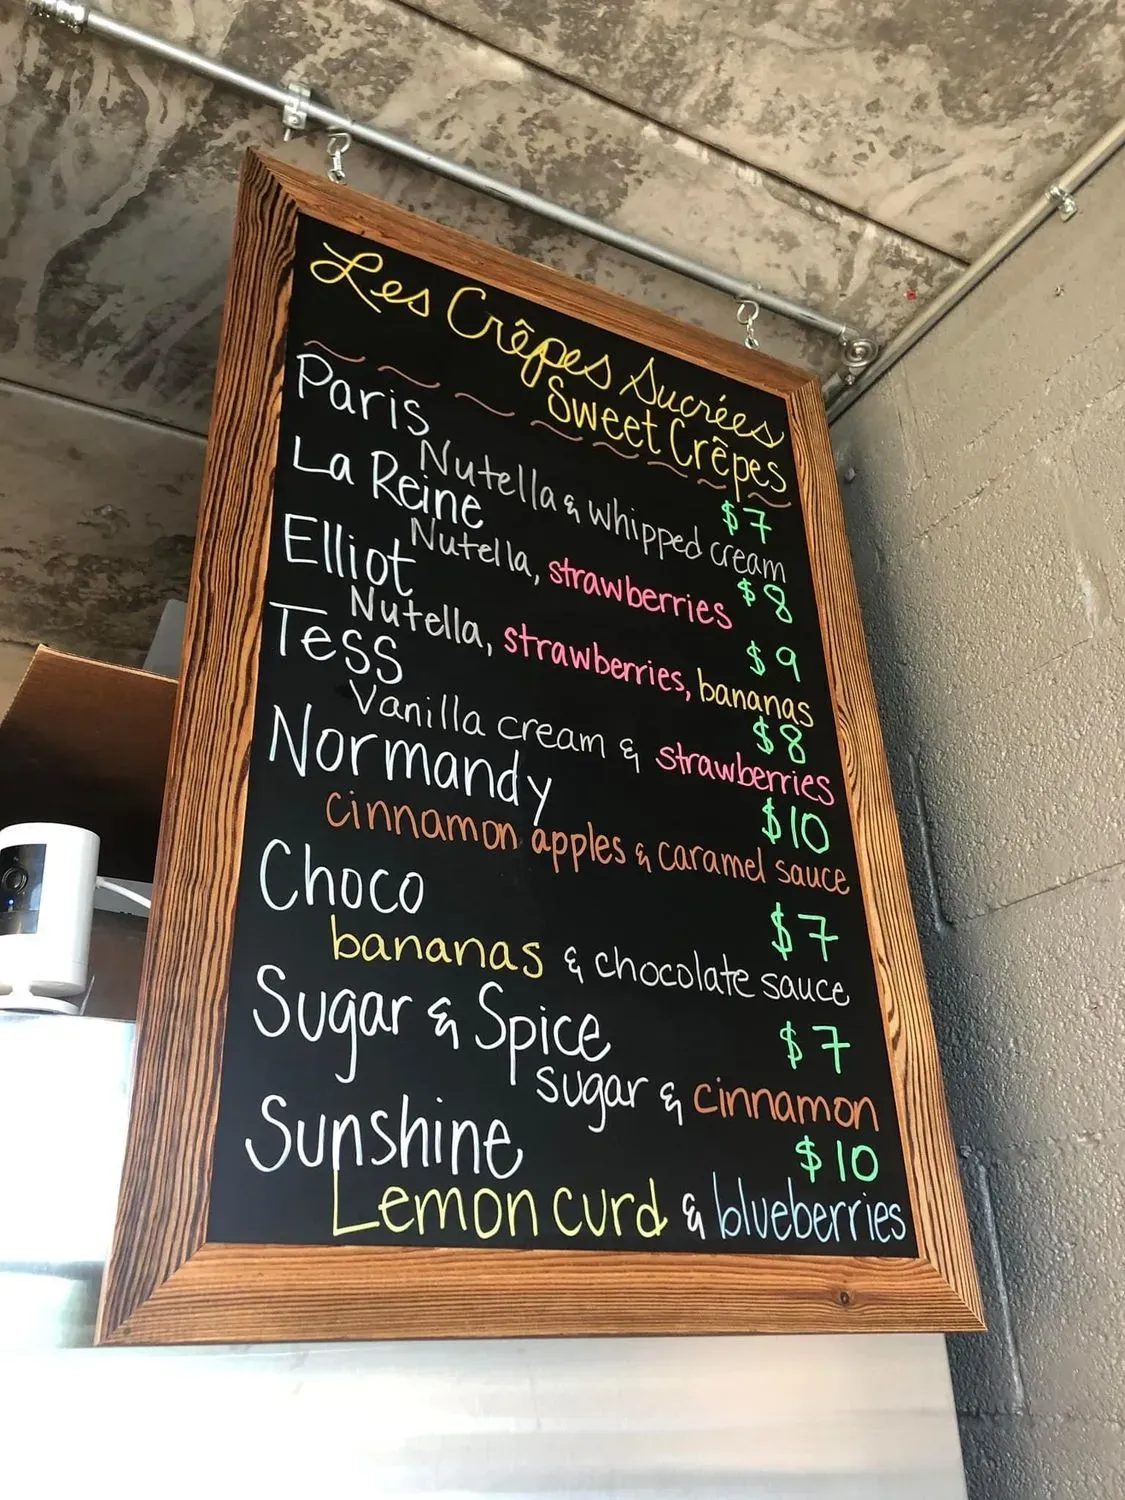 Les Crêpes Sucrées
Sweet Crêpes
Paris $7
Nutella & whipped cream
La Reine $8
Nutella, strawberries
Elliot $9
Nutella, strawberries, bananas
Tess $8
Vanilla cream & strawberries
Normandy $10
cinnamon apples & caramel sauce
Choco $7
bananas & chocolate sauce
Sugar & Spice $7
sugar & cinnamon
Sunshine $10
Lemon curd & blueberries